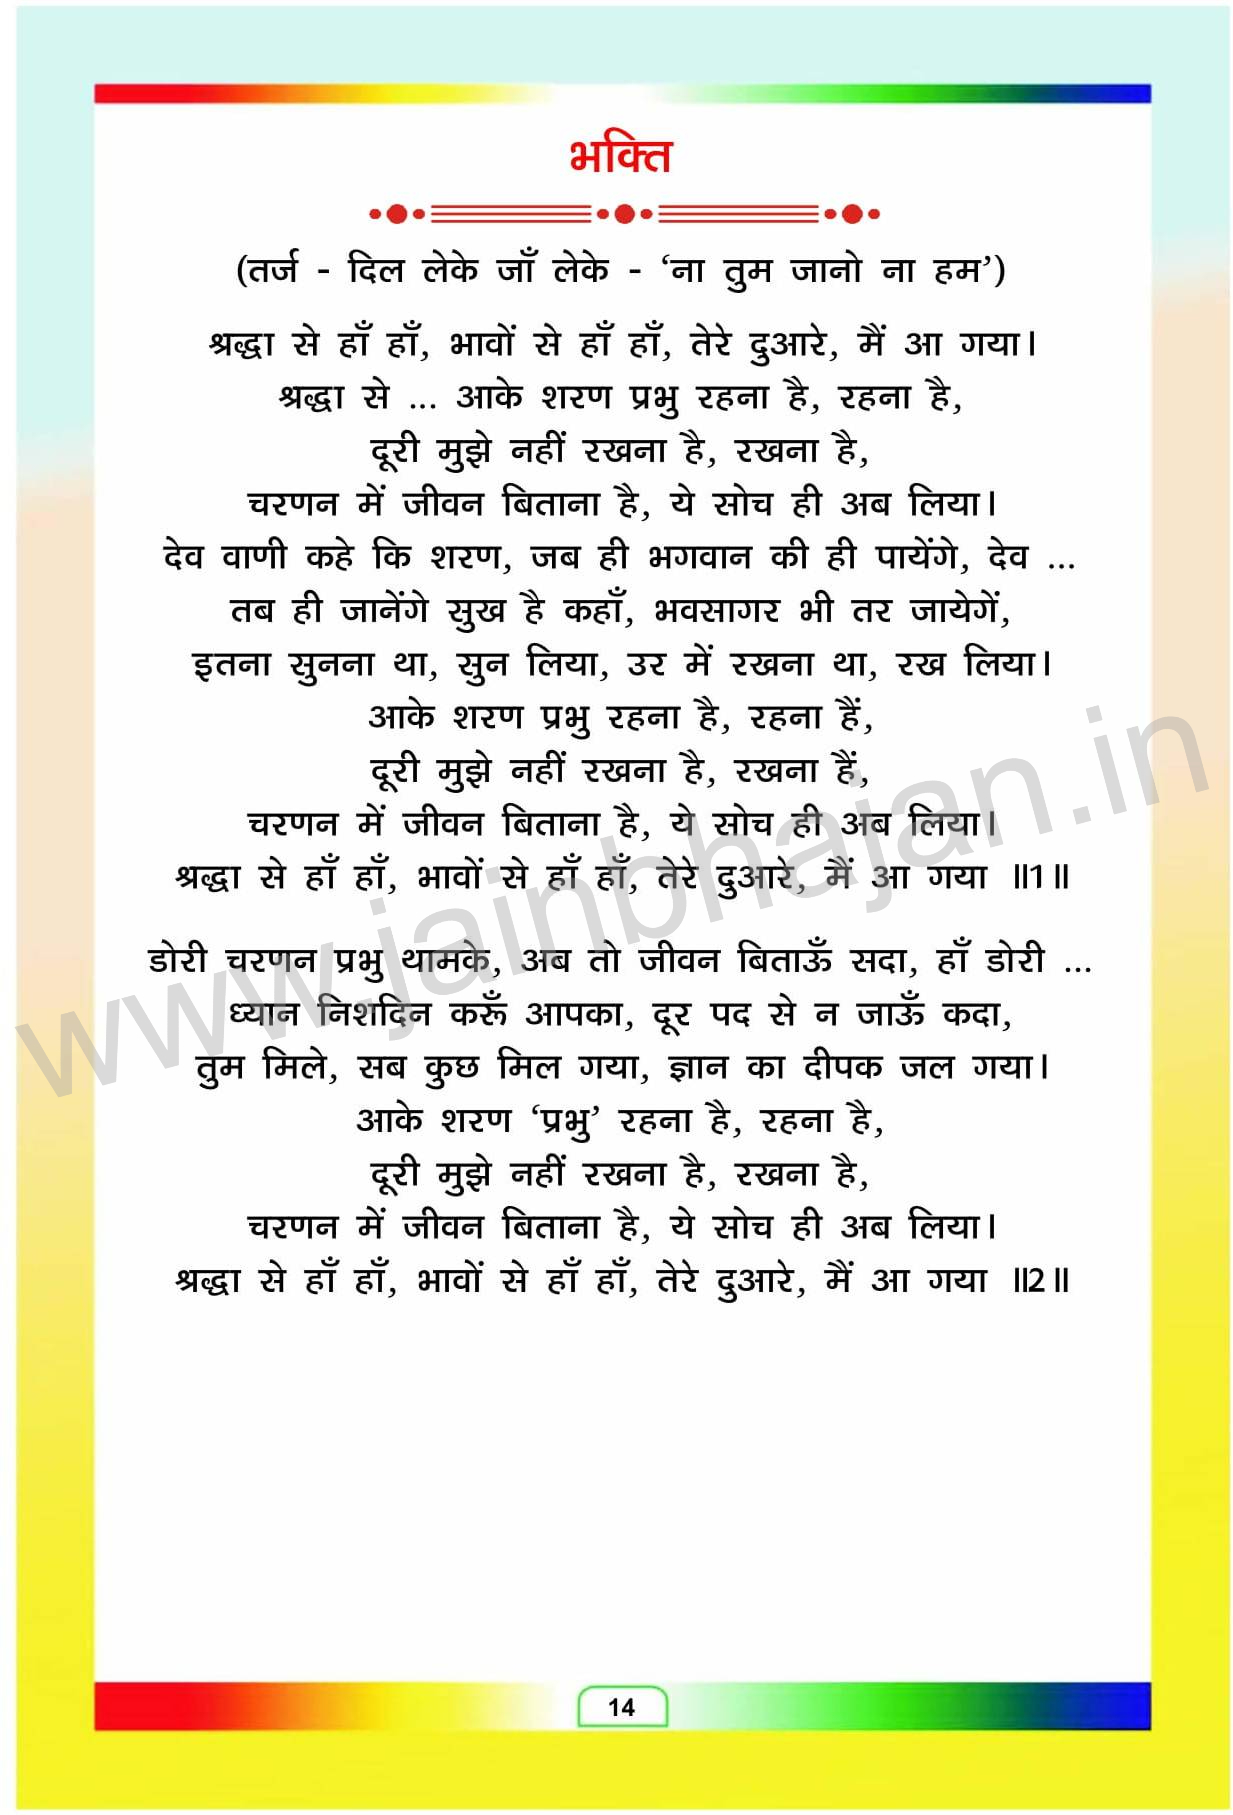 भक्ति
(तर्ज - दिल लेके जाँ लेके - ‘ना तुम जानो ना हम’)
श्रद्धा से हाँ हाँ, भावों से हाँ हाँ, तेरे दुआरे, मैं आ गया।
श्रद्धा से ... आके शरण प्रभु रहना है, रहना है,
दूरी मुझे नहीं रखना है, रखना है,
चरणन में जीवन बिताना है, ये सोच ही अब लिया।
देव वाणी कहे कि शरण, जब ही भगवान की ही पायेंगे, देव ...
तब ही जानेंगे सुख है कहाँ, भवसागर भी तर जायेगें,
इतना सुनना था, सुन लिया, उर में रखना था, रख लिया।
आके शरण प्रभु रहना है, रहना हैं,
दूरी मुझे नहीं रखना है, रखना हैं,
चरणन में जीवन बिताना है, ये सोच ही अब लिया।
श्रद्धा से हाँ हाँ, भावों से हाँ हाँ, तेरे दुआरे, मैं आ गया ॥1॥
डोरी चरणन प्रभु थामके, अब तो जीवन बिताऊँ सदा, हाँ डोरी ...
ध्यान निशदिन करूँ आपका, दूर पद से न जाऊँ कदा,
तुम मिले, सब कुछ मिल गया, ज्ञान का दीपक जल गया।
आके शरण ‘प्रभु’ रहना है, रहना है,
दूरी मुझे नहीं रखना है, रखना है,
चरणन में जीवन बिताना है, ये सोच ही अब लिया।
श्रद्धा से हाँ हाँ, भावों से हाँ हाँ, तेरे दुआरे, मैं आ गया ॥2॥
www.jainbhajan.in
14